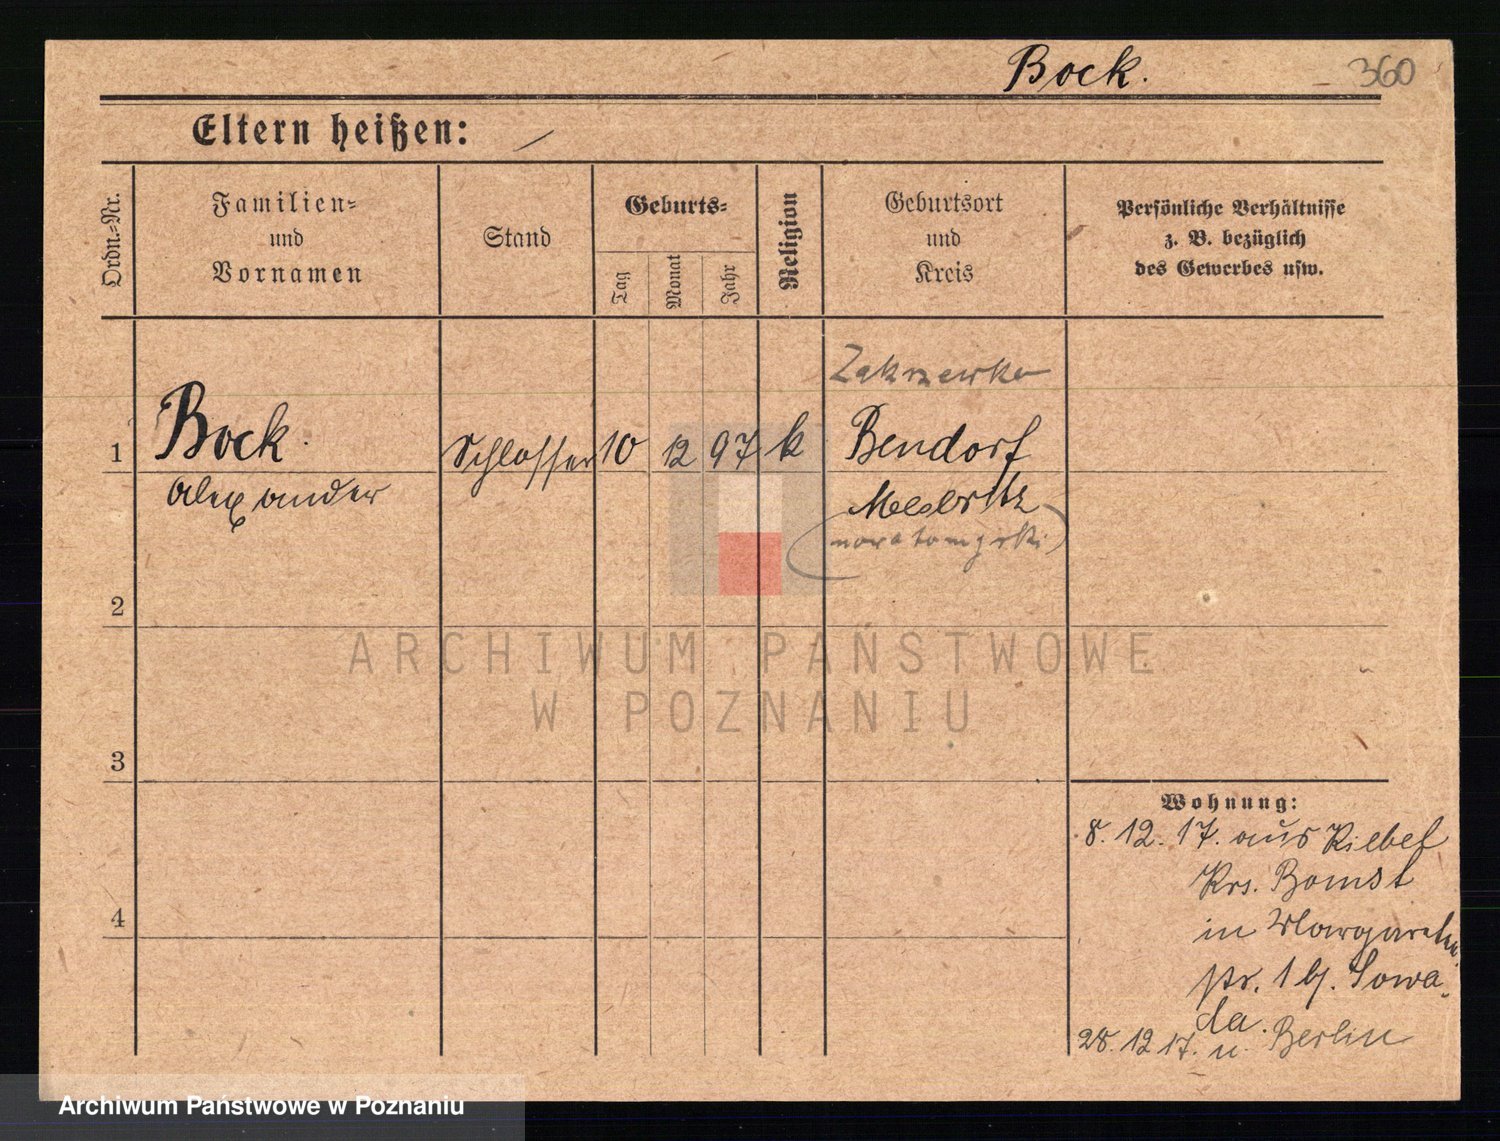 Bock. 360
Eltern heißen: —
Ordn.-Nr.
Familien-
und
Vornamen
Stand
Geburts-
Tag
Monat
Jahr
Religion
Geburtsort
und
Kreis
Persönliche Verhältnisse
z. B. bezüglich
des Gewerbes usw.
Zakrzewko
1 Bock. Schlosser 10 12 97 k Bendorf
Alexander Meseritz
(nowotomyski)
2
ARCHIWUM PAŃSTWOWE
W POZNANIU
3
Wohnung:
8. 12. 17. aus Kiebel
Krs. Bomst
4
in Margareten
str. 1 b. Sowa
da.
28. 12 17. n. Berlin
Archiwum Państwowe w Poznaniu